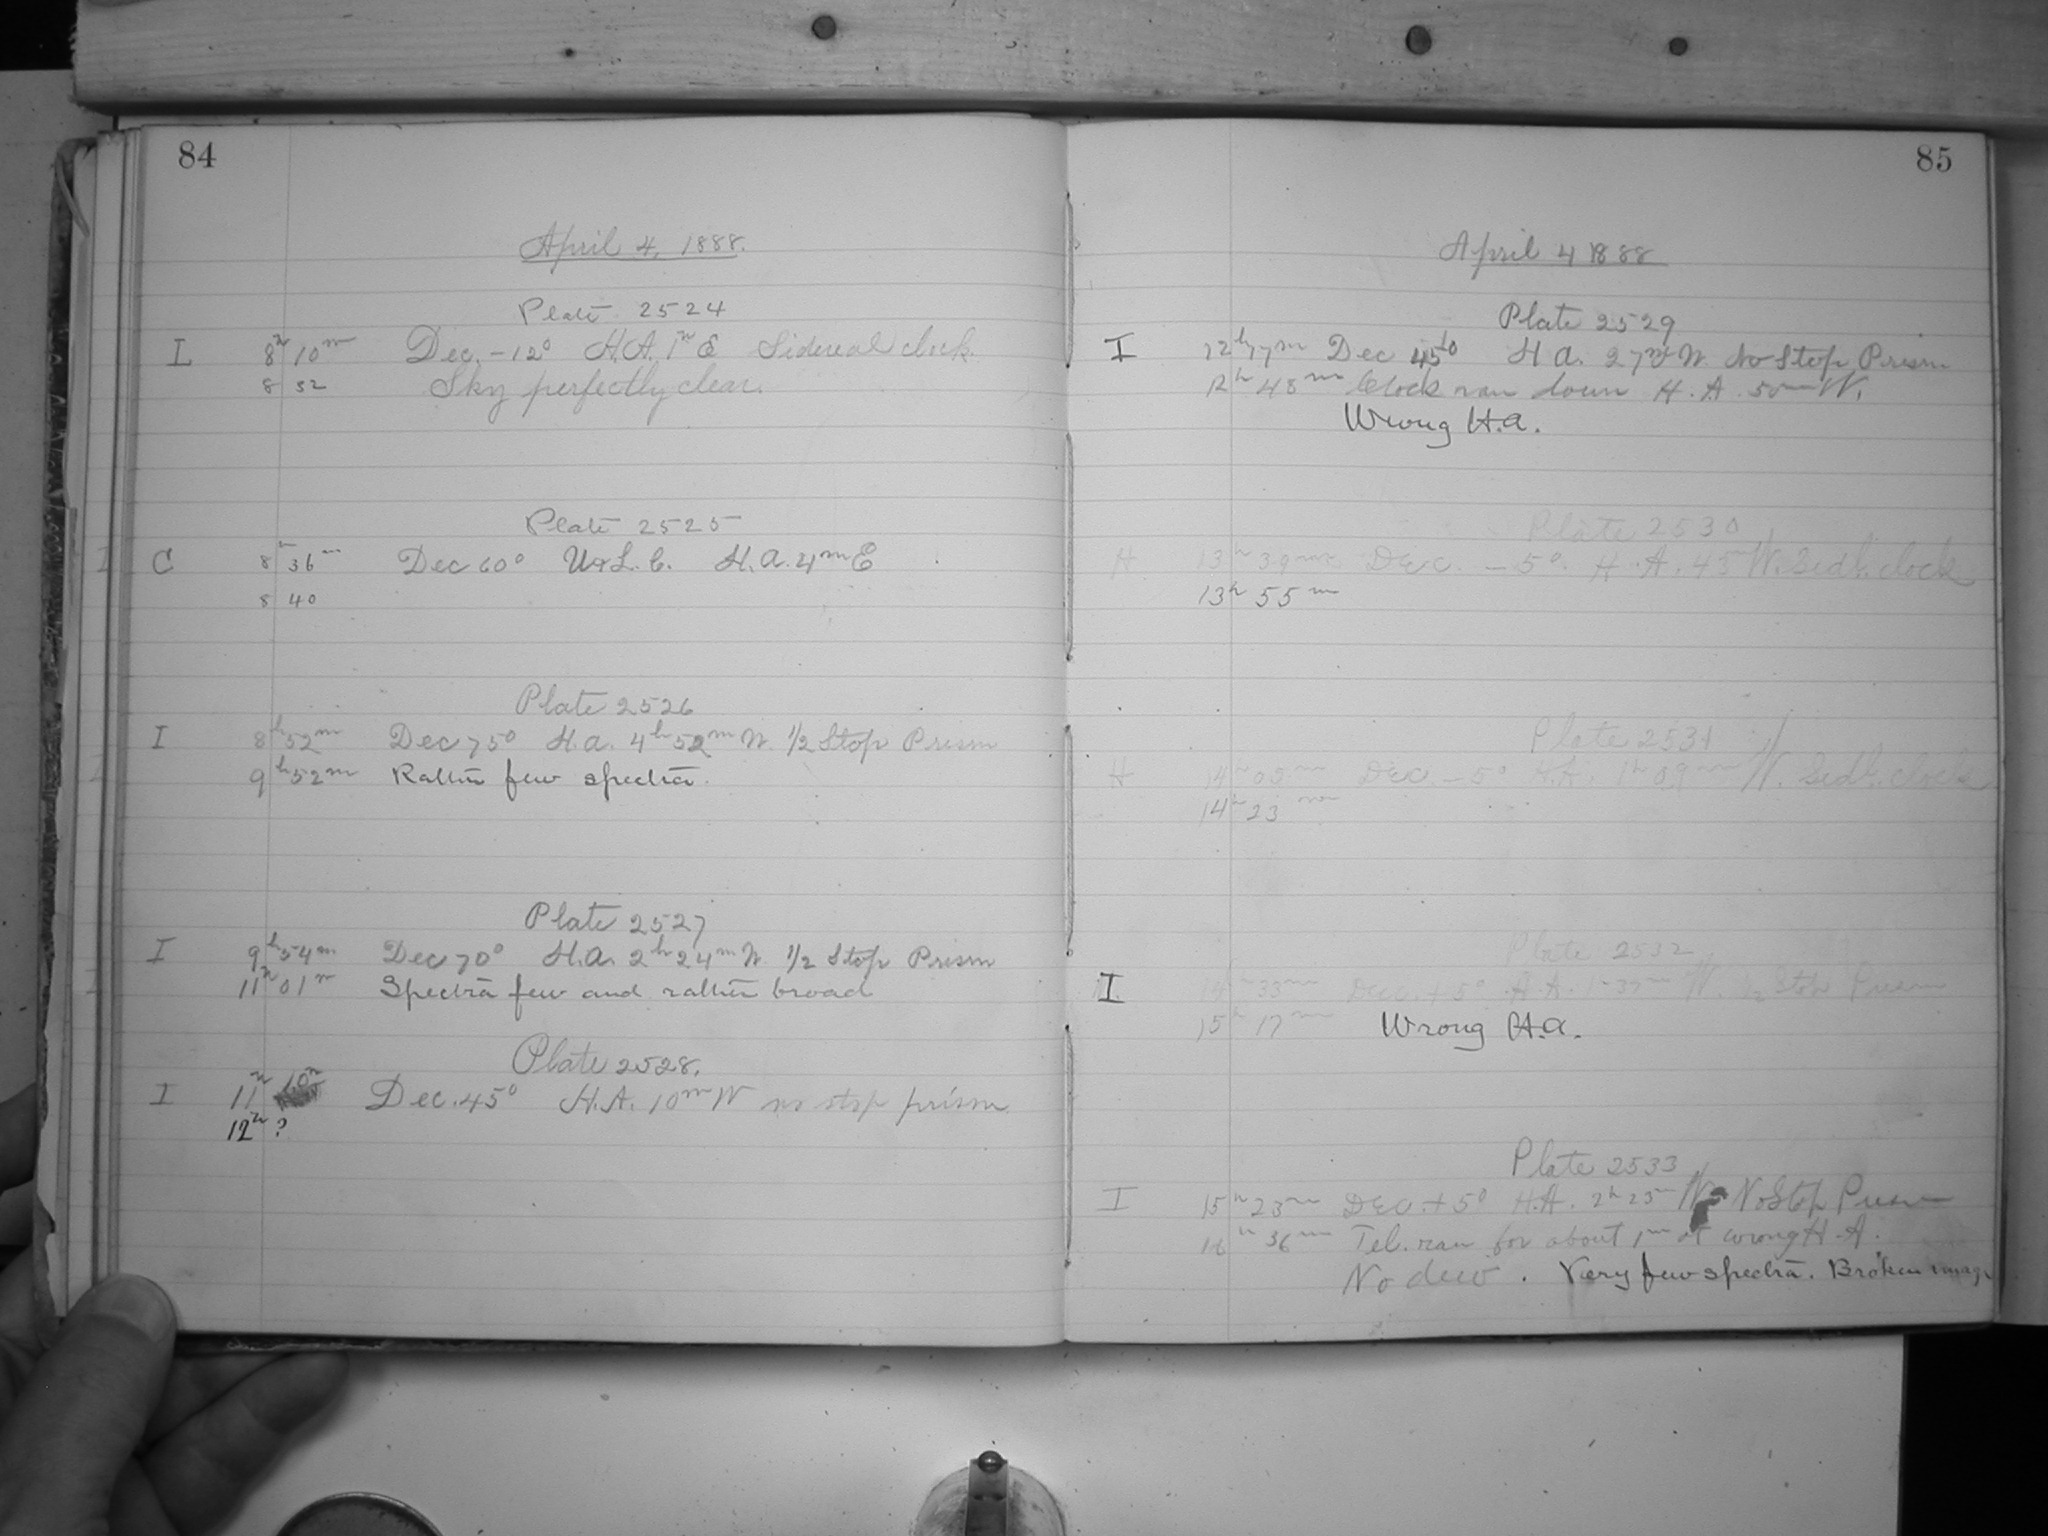 84
April 4, 1888.
Plate 2524
I 8h 10m Dec. -12° H.A. 1h E Sidereal clock.
8 52 Sky perfectly clear.
Plate 2525
C 8h 36m Dec 60° U & L. C. H.A. 4m E
8 40
Plate 2526
I 8h 52m Dec 75° H.a. 4h 52m W. 1/2 Stop Prism
9h 52m Rather few spectra.
Plate 2527
I 9h 54m Dec 70° H.a. 2h 24m W. 1/2 Stop Prism
11h 01m Spectra few and rather broad
Plate 2528.
I 11h Dec. 45° H.A. 10m W no stop prism
12h ?
85
April 4 1888
Plate 2529
I 12h 17m Dec H a. 27m W. No Stop Prism
12h 48m Clock ran down H.A. 50m W.
Wrong H.a.
Plate 2530
H 13h 39m Dec. -5°. H.A. 45 W. Sedl. clock
13h 55m
Plate 2531
H 14h 05m Dec. -5° H.A. 1h 09m W. Sedl. clock
14h 23m
Plate 2532
I 14h 33m Dec. +5° H.A. 1h 37m W. 1/2 Stop Prism
15h 17m Wrong H.a.
Plate 2533
I 15h 23m Dec. +5° H.A. 2h 23m W. No Stop Prism
16h 36m Tel. ran for about 1m at wrong H.A.
No dew. Very few spectra. Broken image